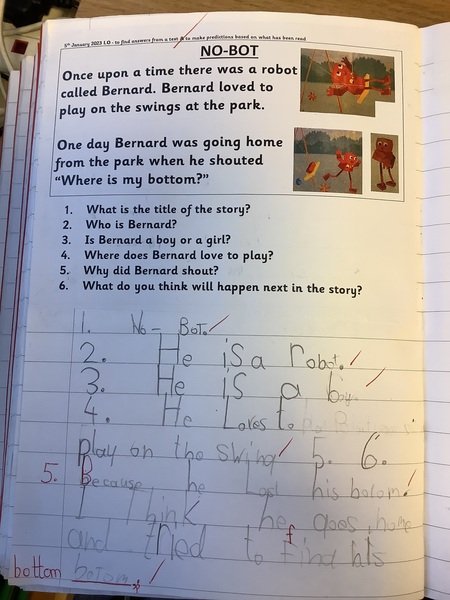 5th January 2023 LO - to find answers from a text & to make predictions based on what has been read
NO-BOT
Once upon a time there was a robot
called Bernard. Bernard loved to
play on the swings at the park.
One day Bernard was going home
from the park when he shouted
“Where is my bottom?”
1. What is the title of the story?
2. Who is Bernard?
3. Is Bernard a boy or a girl?
4. Where does Bernard love to play?
5. Why did Bernard shout?
6. What do you think will happen next in the story?
1. No - Bot.
2. He is a robot.
3. He is a boy.
4. He Loves to
play on the swing 5. 6.
5. Because he Lost his botom.
I Think he goes home
and tried to find his
bottom botom.